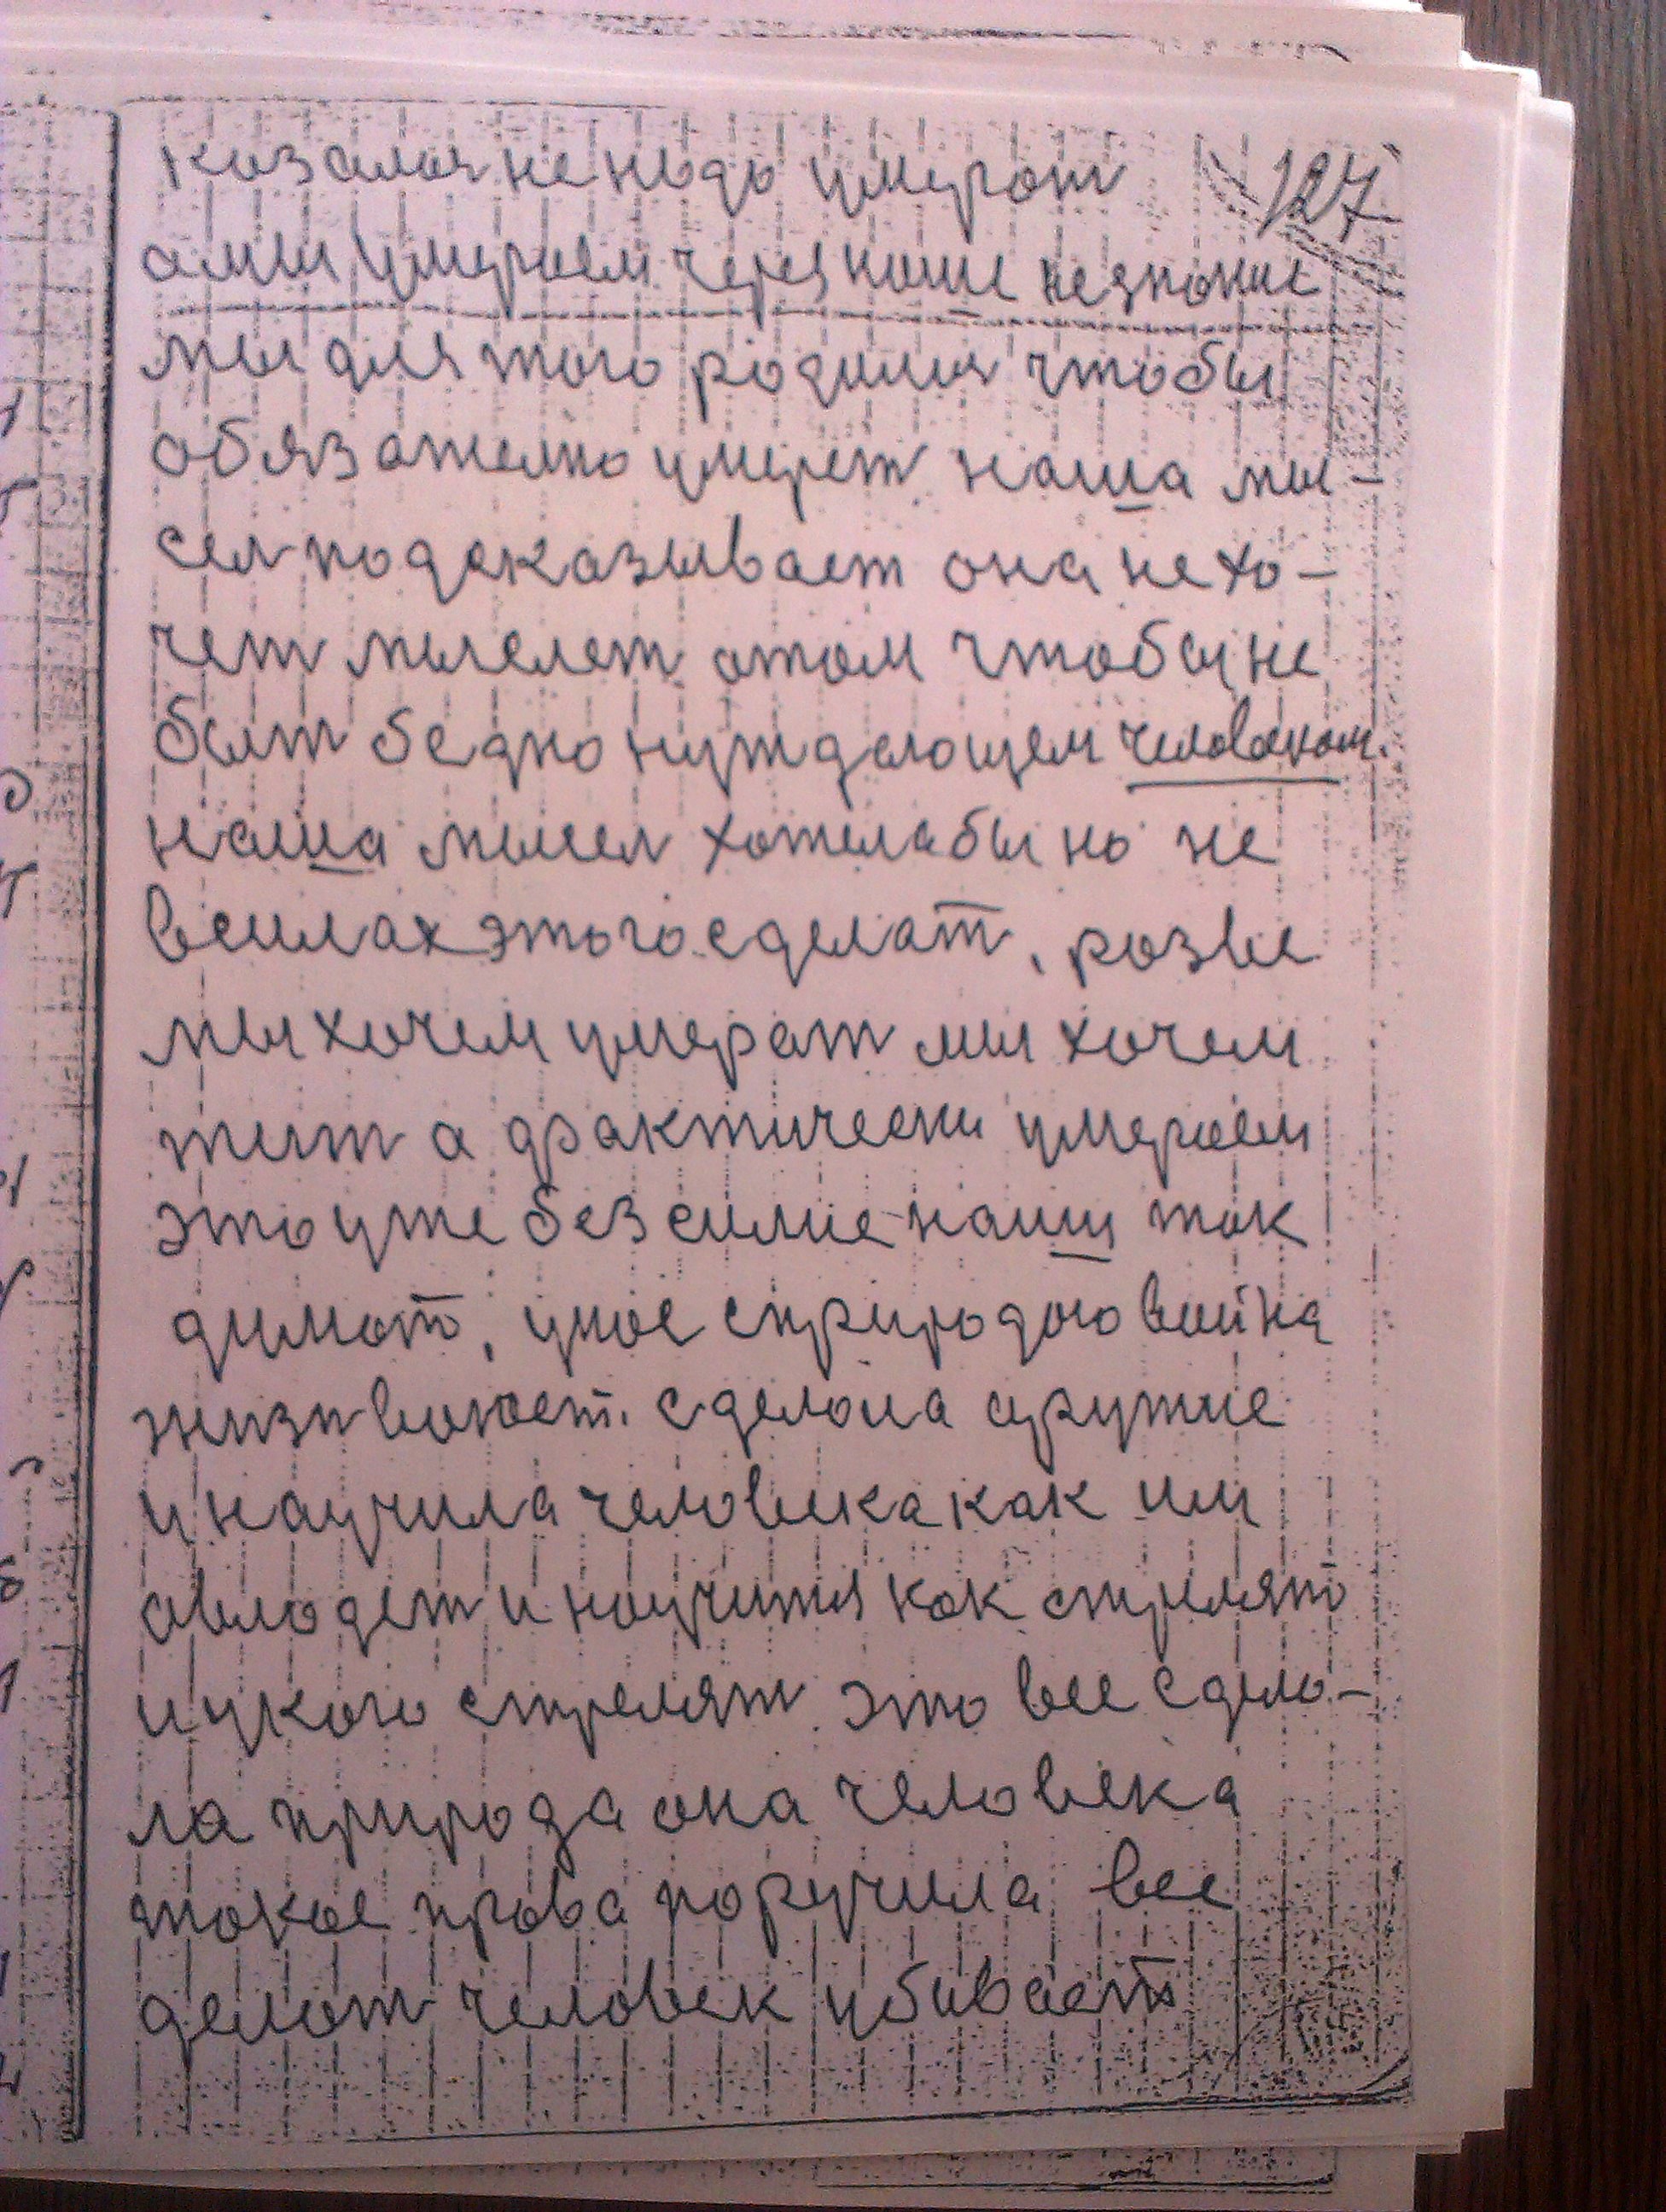 казалося не надо умерат
127
амы умераем через наше незнание
мы для того родилися чтобы
обязателно умерет наша мы-
сел подсказывает она не хо-
чет мыслет отом чтобы не
быт бедно нуждающем человеком.
наша мысел хотела бы но не
всилах этого сделат, разве
мы хочем умерат мы хочем
жит а фактически умераем
это уже безсилие наши так
думат, у нас сприродою война
жизн воюет. сделала аружие
и научила человека как им
овладет и научится как стрелят
и укого стрелят это все сдела-
ла природа она человека
такое права поручила все
делат человек убивает